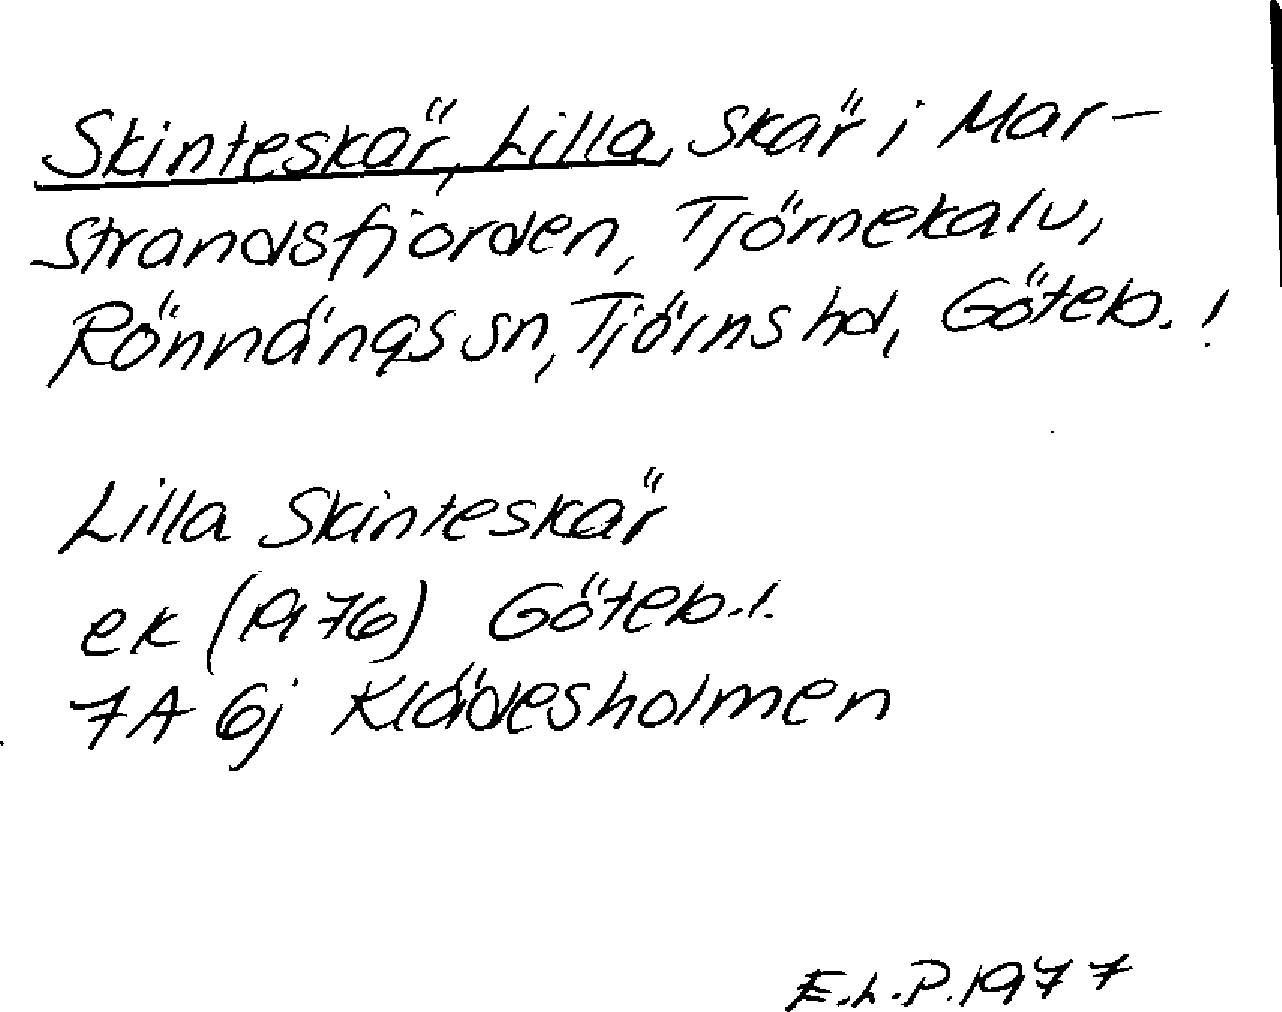 Skinteskär, Lilla, skär i Mar-
strandsfjorden, Tjörnekalv,
Rönnängs sn, Tjörns hd, Göteb. l
Lilla Skinteskär
ek (1976) Göteb. l.
7A 6j Klädesholmen
E.L.P. 1977